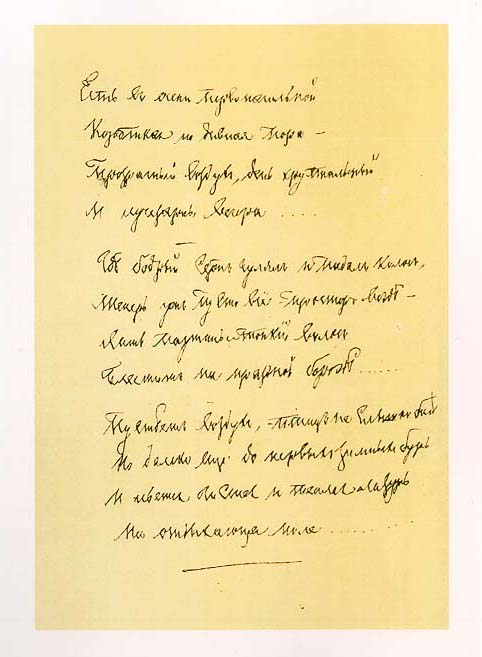 Есть въ осени первоначальной
Короткая но дивная пора –
Прозрачный воздухъ, день хрустальный
И лучезарны вечера ....
Гдѣ бодрый Серпъ гулялъ и падалъ колосъ,
Теперь ужъ пусто всё – просторъ вездѣ –
Лишь паутины тонкій волосъ
Блеститъ на праздной бороздѣ ......
Пустѣетъ воздухъ, – птицъ не слышно болѣ
Но далеко еще до первыхъ зимнихъ бурь
И льется чистая и теплая лазурь
На отдыхающее поле ........